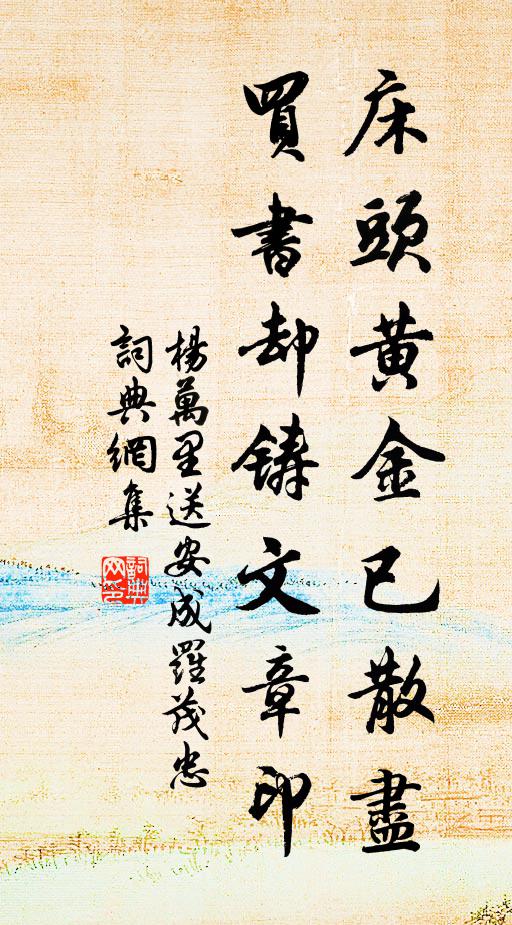 床頭黄金已散盡
買書却鑄文章印
楊萬里送安成羅茂忠
詞典網集
詞典
网印